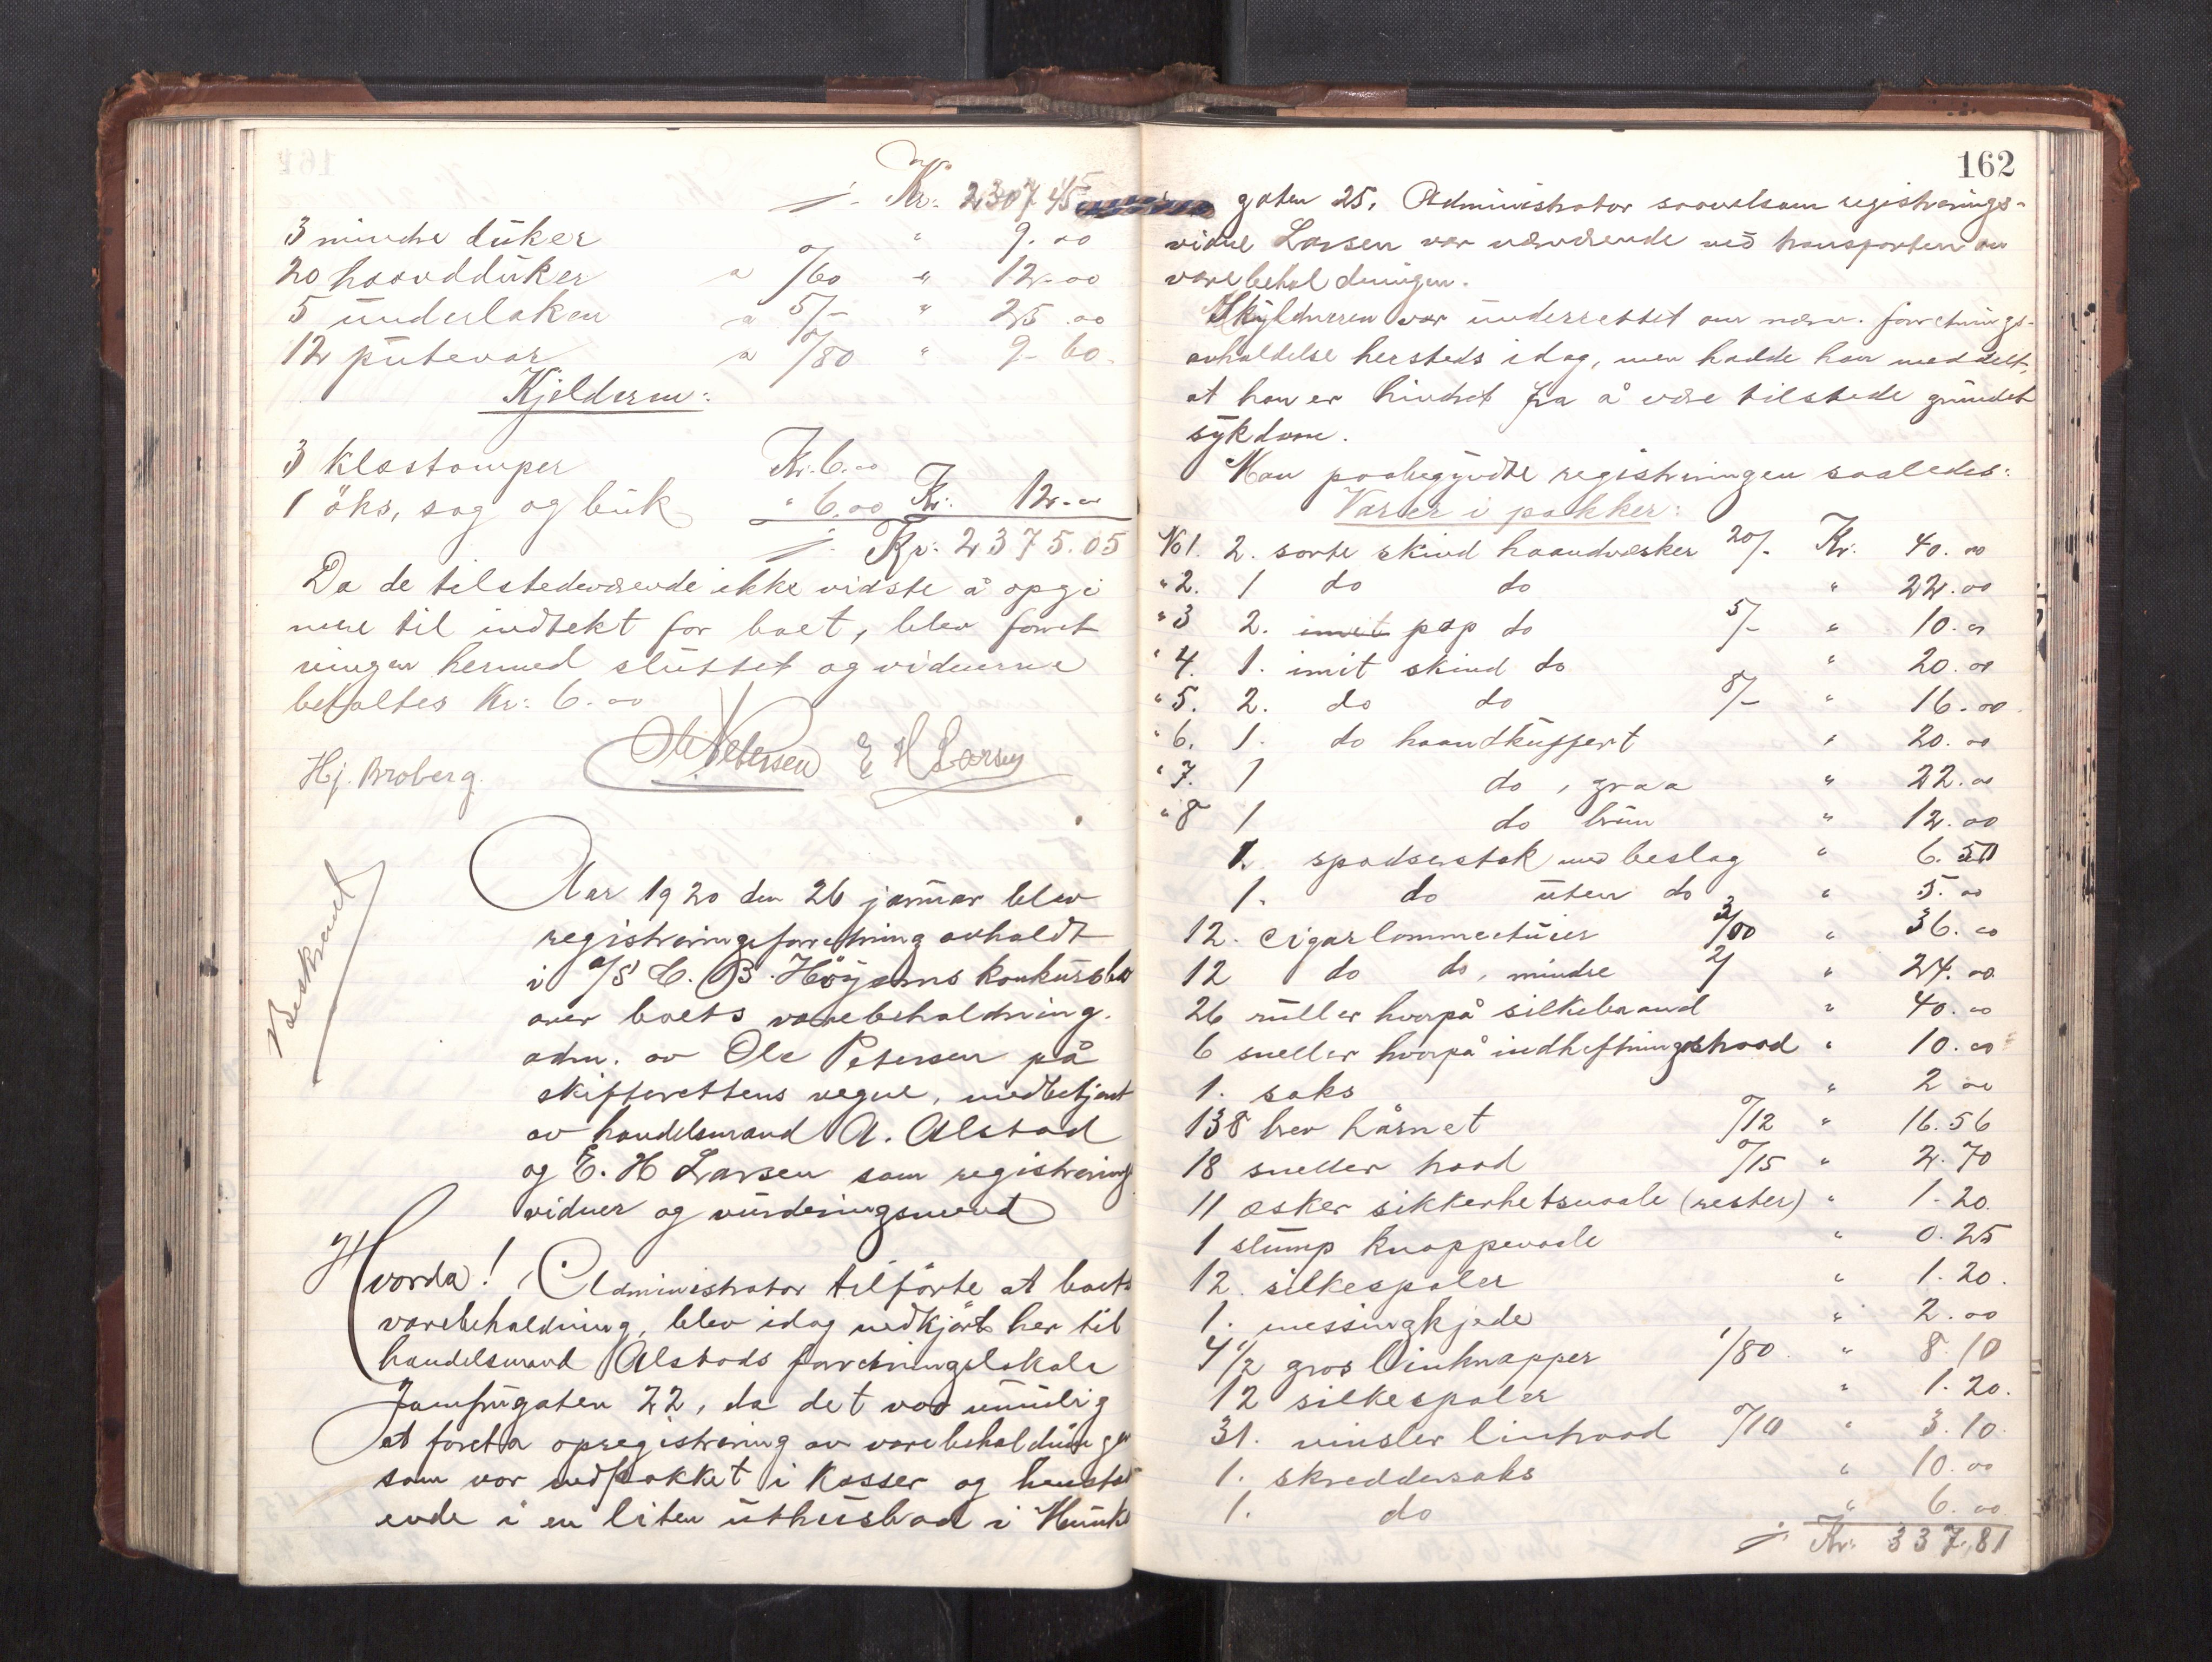 Kr. 2307 45
3 mindre düker " 9.00
20 haandduker a 0/60 " 12.00
5 ünderlaken a 5/- " 25.00
12 pütevar a 0/80 " 9.60
Kjelderen:
3 klæstamper Kr. 6.00
1 öks, sag og bük " 6.00 Kr. 12.00
Kr. 2375.05
Da de tilstedeværende ikke vidste å opgi
mere til indtekt for boet, blev forret
ningen hermed slüttet og vidnerne
betaltes Kr: 6.00
Hj. Broberg. Petersen E H Larsen
Beskrevet
Aar 1920 den 26 januar blev
registreringsforretning avholdt
i A/S C. B. Höyems konkursbo
over boets varebeholdning.
adm. av Ole Petersen på
skifterettens vegne, medbetjent
av handelsmand A. Alstad
og E. H Larsen som registrerings
vidner og vürderingsmend
Hvorda! Administrator tilförte at boets
varebeholdning, blev idag nedkjört her til
handelsmand Alstads forretningslokale
Jomfrugaten 22, da det var umulig
at foreta opregistrering av varebeholdningen
som var nedpakket i kasser og henstaa
ende i en liten üthüsbod i Munke
162
gaten 25. Administrator saavelsom registrerings-
vidne Larsen var nærværende ved transporten av
varebeholdningen.
Skyldneren var ünderrettet om nærv. forretnings-
avholdelse hersteds idag, men hadde han meddelt,
at han er hindret fra å være tilstede grundet
sykdom.
Man paabegyndte registreringen saaledes:
Varer i pakker:
No 1. 2. sorte skind haandvæsker 20/- Kr. 40.00
" 2. 1 do do " 22.00
" 3 2. imit pap do 5/- " 10.00
" 4. 1. imit skind do " 20.00
" 5. 2. do do 8/- " 16.00
" 6. 1. do haandküffert " 20.00
" 7. 1 do, graa " 22.00
" 8 1 do brün " 12.00
1. spadserstok med beslag " 6.50
1. do üten do " 5.00
12. cigarlommeetüier 3/00 " 36.00
12 do do, mindre 2/ " 24.00
26 rüller hvorpå silkebaand " 40.00
6 sneller hvorpå indheftningstraad " 10.00
1. saks " 2 00
138 brev hårnet 0/12 " 16.56
18 sneller traad 0/15 " 2.70
11 æsker sikkerhetsnaale (rester) " 1.20.
1 stump knappenaale " 0.25
12. silkespoler " 1.20.
1. messingkjede " 2.00
4 1/2 gros linknapper 1/80. " 8.10
12 silkespoler " 1.20.
31. vinsler lintraad 0/10 " 3.10.
1. skreddersaks " 10.00
1. do " 6.00
Kr. 337.81